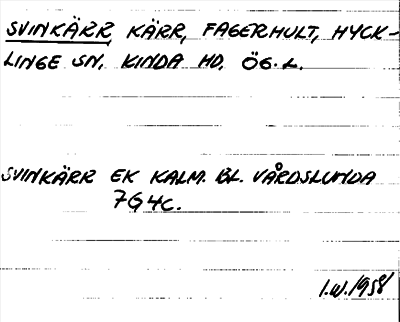 SVINKÄRR, KÄRR, FAGERHULT, HYCK-
LINGE SN, KINDA HD, ÖG. L.
SVINKÄRR EK KALM. BL. VÅRDSLUNDA
7G4C.
I.W. 1958